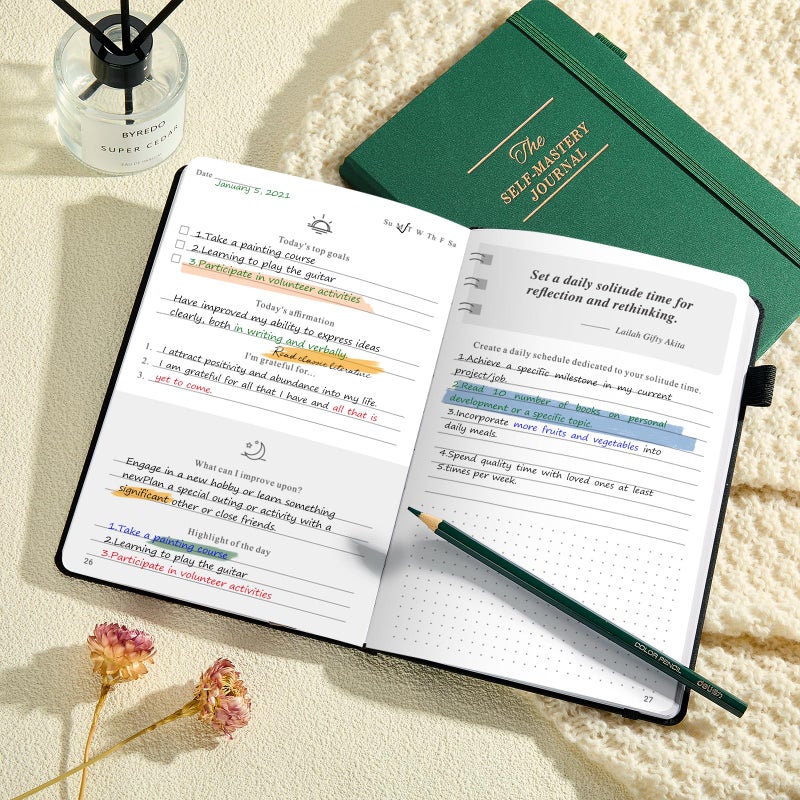 BYREDO
SUPER CEDAR
EAU DE PARFUM
The
SELF-MASTERY
JOURNAL
Date January 5, 2021
Su M T W Th F Sa
Today's top goals
1.Take a painting course
2.Learning to play the guitar
3.Participate in volunteer activities
Today's affirmation
Have improved my ability to express ideas
clearly, both in writing and verbally.
Read classic literature
I'm grateful for...
1. I attract positivity and abundance into my life.
2. I am grateful for all that I have and all that is
3. yet to come.
What can I improve upon?
Engage in a new hobby or learn something
newPlan a special outing or activity with a
significant other or close friends.
Highlight of the day
1.Take a painting course
2.Learning to play the guitar
3.Participate in volunteer activities
26
Set a daily solitude time for
reflection and rethinking.
Lailah Gifty Akita
Create a daily schedule dedicated to your solitude time.
1.Achieve a specific milestone in my current
project/job.
2.Read 10 number of books on personal
development or a specific topic.
3.Incorporate more fruits and vegetables into
daily meals.
4.Spend quality time with loved ones at least
5.times per week.
27
COLOR PENCIL deli